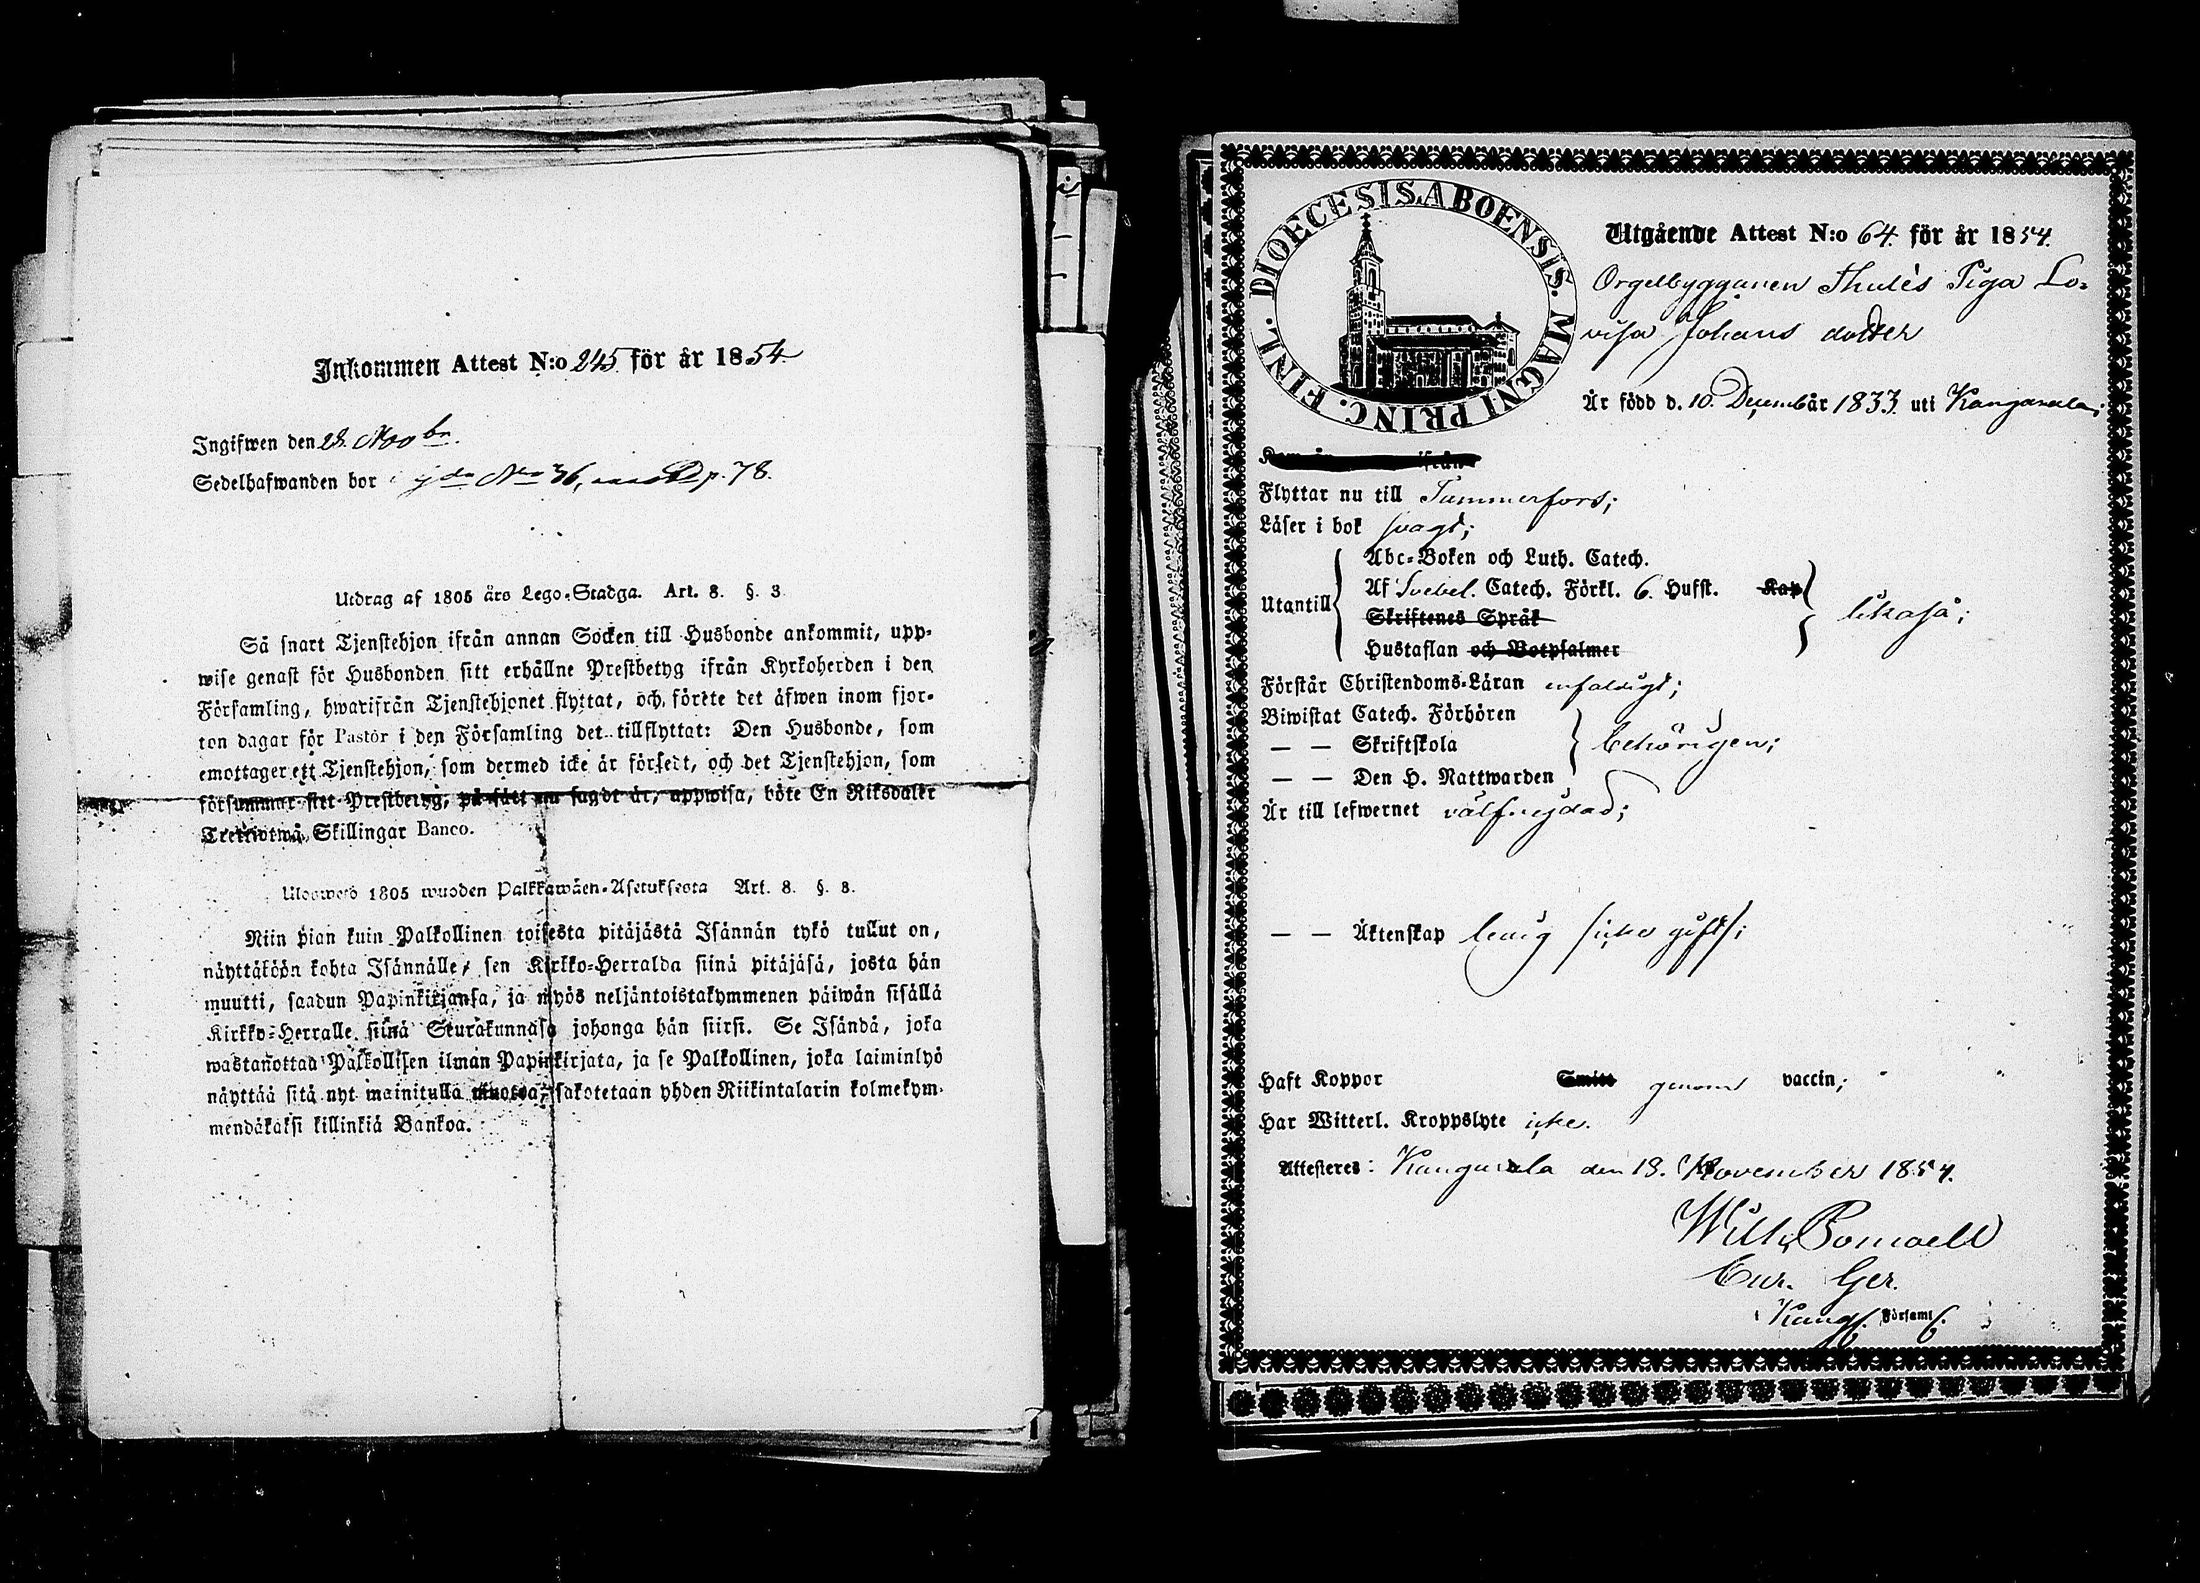 Inkommen Attest N:o 245. för år 1854.
Ingifwen den 28. Novbr.
Sedelhafwanden bor i jda No 36, p. 78.
Utdrag af 1805 års Lego-Stadga. Art. 8. §. 3
Så snart Tjenstehjon ifrån annan Socken till Husbonde ankommit, upp-
wise genast för Husbonden sitt erhållne Prestbetyg ifrån Kyrkoherden i den
Församling, hwarifrån Tjenstehjonet flyttat, och förete det äfwen inom fjor-
ton dagar för Pastor i den Församling det tillflyttat: Den Husbonde, som
emottager ett Tjenstehjon, som dermed icke är försedt, och det Tjenstehjon, som
försummar sitt Prestbetyg, på sätt nu sagdt är, uppwisa, böte En Riksdaler
Trettiotwå Skillingar Banco.
Ulosweto 1805 wuoden Palkkawäen-Asetuksesta Art. 8. §. 8.
Niin pian kuin Palkollinen toisesta pitäjästä Isännän tykö tullut on,
näyttäköön kohta Isännälle, sen Kirkko-Herralda siinä pitäjäsä, josta hän
muutti, saadun Papinkirjansa, ja myös neljäntoistakymmenen päiwän sisällä
Kirkko-Herralle siinä Seurakunnasa johonga hän siirsi. Se Isändä, joka
wastanottaa Palkollisen ilman Papinkirjata, ja se Palkollinen, joka laiminlyö
näyttää sitä nyt mainitulla muotoa, sakotetaan yhden Riikintalarin kolmekym-
mendäkaksi killinkiä Bankoa.
DIOECESIS ABOENSIS. MAGNI PRINC. FINL.
Utgående Attest N:o 64. för år 1854.
Orgelbyggaren Thulés Piga Lo-
visa Johans dotter
Är född d. 10. December 1833. uti Kangasala;
Flyttar nu till Tammerfors;
Läser i bok svagt;
Utantill
Abc-Boken och Luth. Catech.
Af Svebel. Catech. Förkl. 6. Hufst. Kap
Skriftenes Språk
Hustaflan och Botpsalmer
likaså;
Förstår Christendoms-Läran enfaldigt;
Biwistat Catech. Förhören
— — Skriftskola
— — Den H. Nattwarden
behörigen;
Är till lefwernet välfrejdad;
— — Äktenskap ledig /icke gift/;
Haft Koppor Smitt genom vaccin;
Har Witterl. Kroppslyte icke.
Attesteres: Kangasala den 18. November 1854.
Wilh. Pomoell
Cur. Ger.
Kang. Församl.